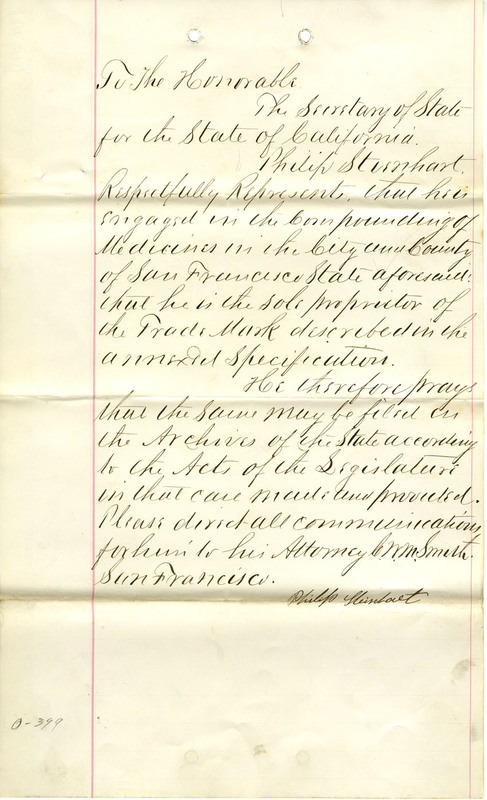 To The Honorable
The Secretary of State
for the State of California.
Philip Steinhart.
Respectfully Represents, that he is
engaged in the Compounding of
Medicines in the City and County
of San Francisco State aforesaid:
that he is the sole proprietor of
the Trade Mark described in the
annexed Specification.
He therefore prays
that the same may be filed in
the Archives of the State according
to the Acts of the Legislature
in that case made and provided.
Please direct all communications
for him to his Attorney C.W.M. Smith.
San Francisco.
Philip Steinhart
0-399